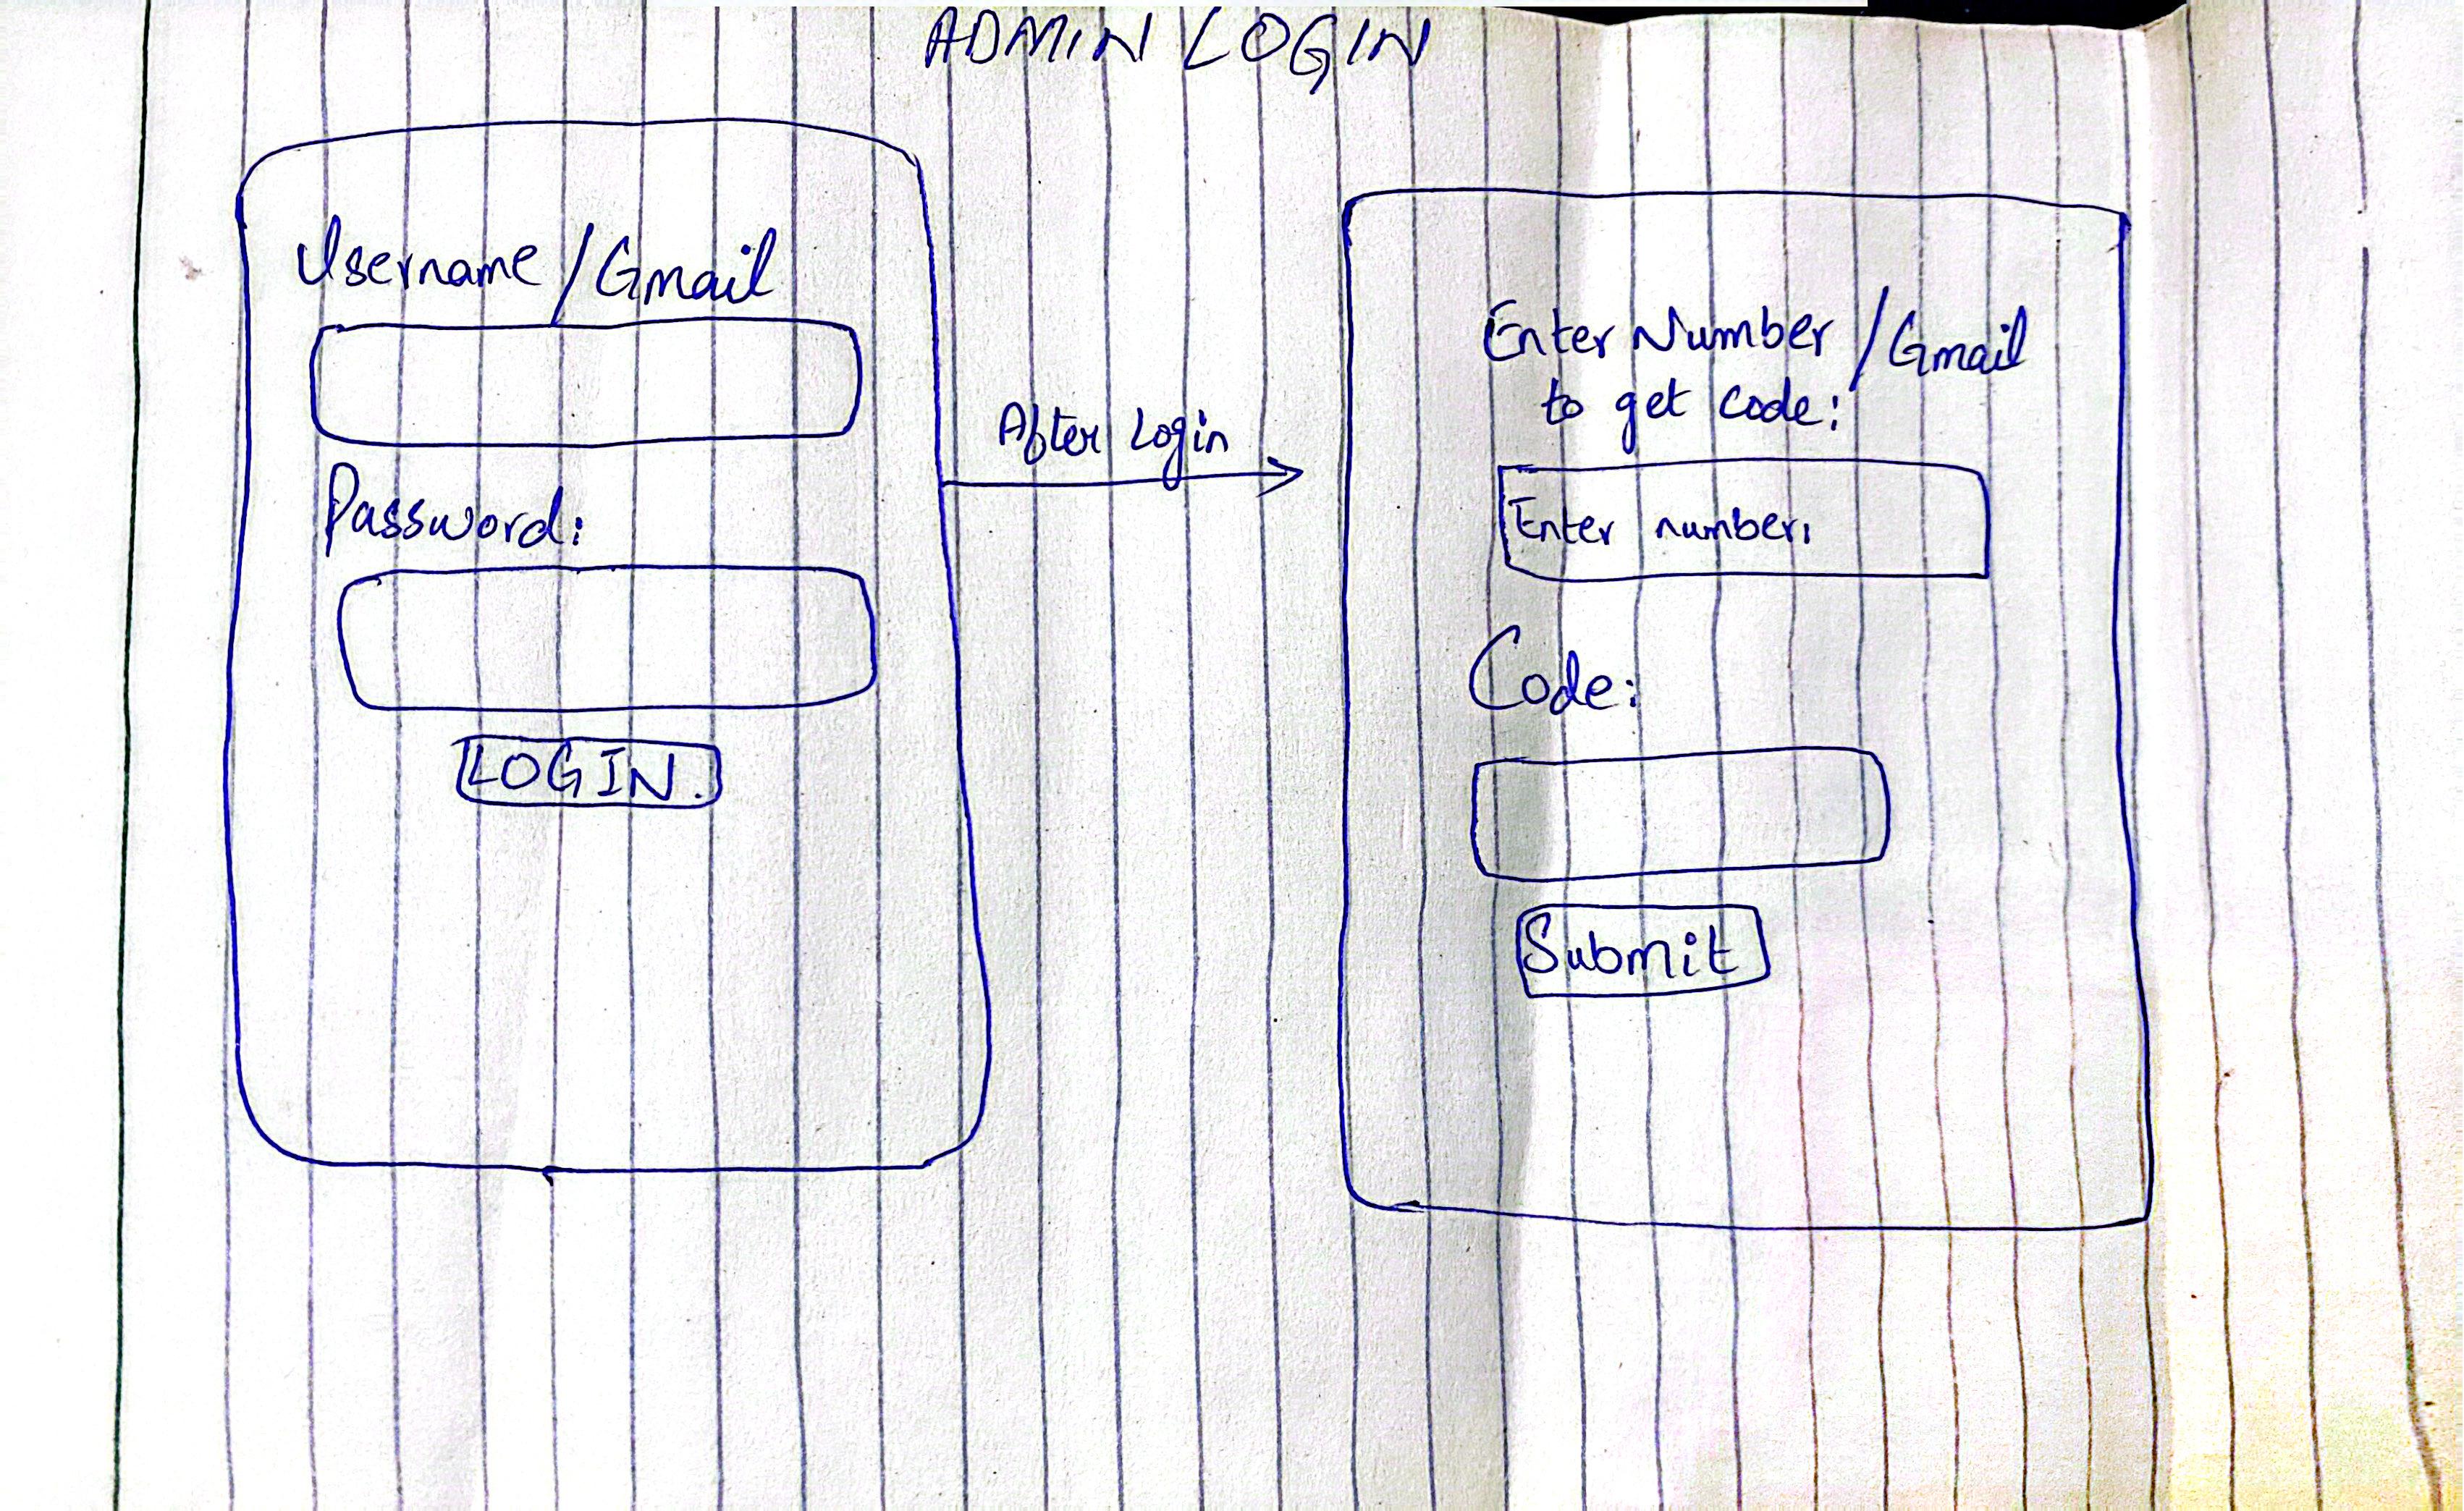 ADMIN LOGIN
Username/Gmail
Password:
LOGIN.
After Login
Enter Number/Gmail
to get code:
Enter number:
Code:
Submit